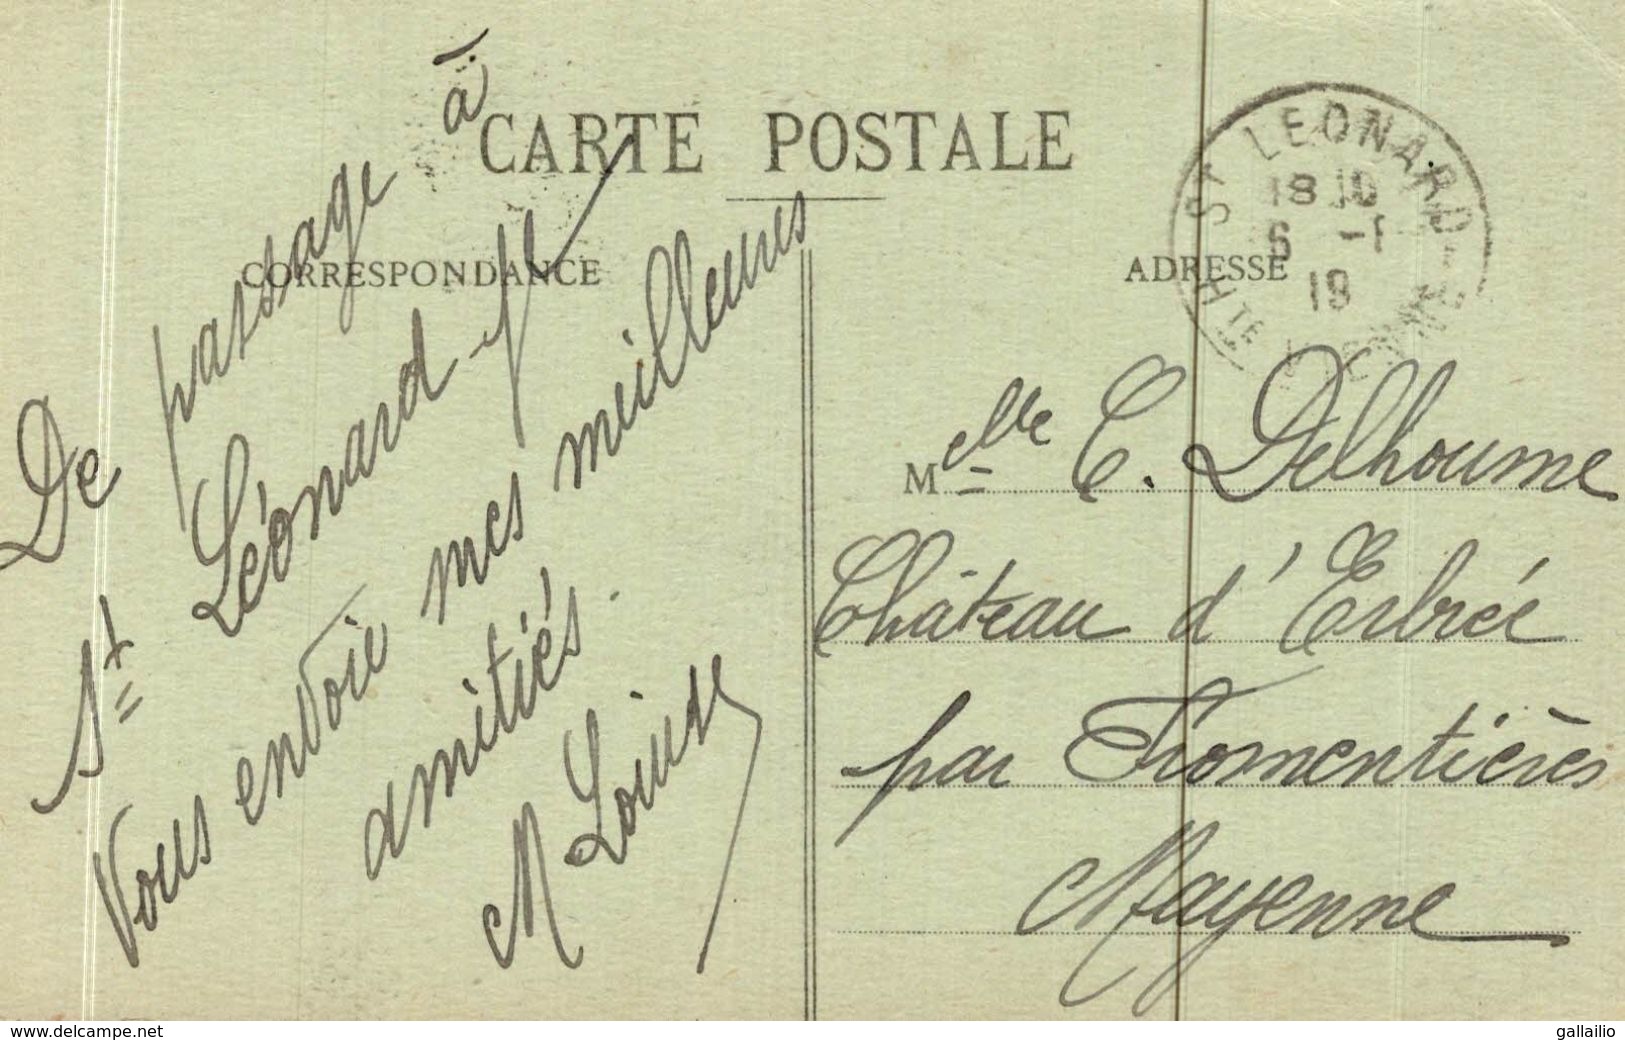 CARTE POSTALE
CORRESPONDANCE
De passage à
St Léonard je
Vous envoie mes meilleures
amitiés.
M Louise
ADRESSE
ST LEONARD
18 10
6 -1
19
HTE VIENNE
Melle C. Delhoume
Château d'Erbrée
par Fromentières
Mayenne
www.delcampe.net
gallailio